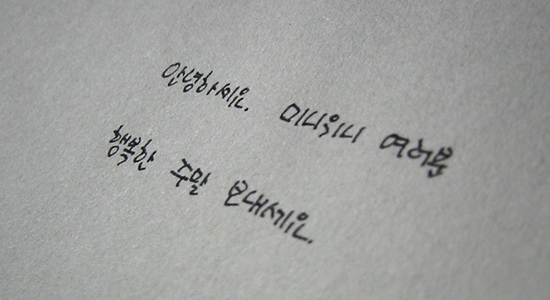 안녕하세요. 미니위니 여러분
행복한 주말 보내세요.